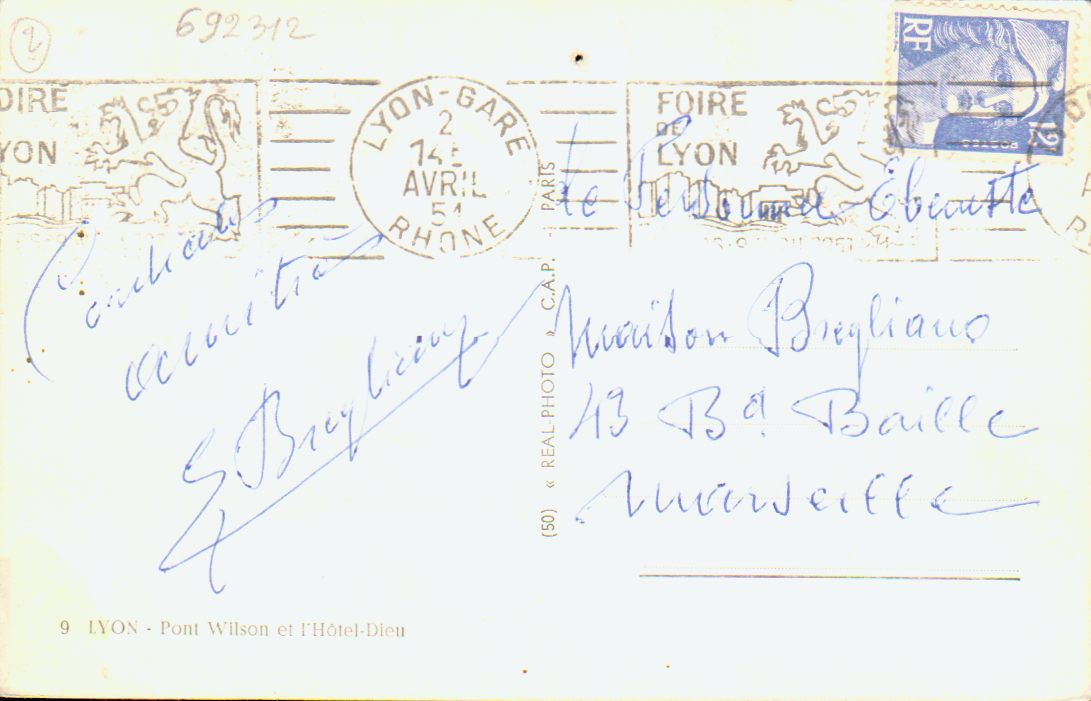 2
692312
OIRE
YON
LYON-GARE
2
14
AVRIL
51
RHONE
FOIRE
DE
LYON
RF
12F
POSTES
Cordiales
amitiés
Bregliano
Maison Bregliano
43 Bd. Baille
Marseille
(50) « REAL-PHOTO » C.A.P. - PARIS
9 LYON - Pont Wilson et l'Hôtel-Dieu